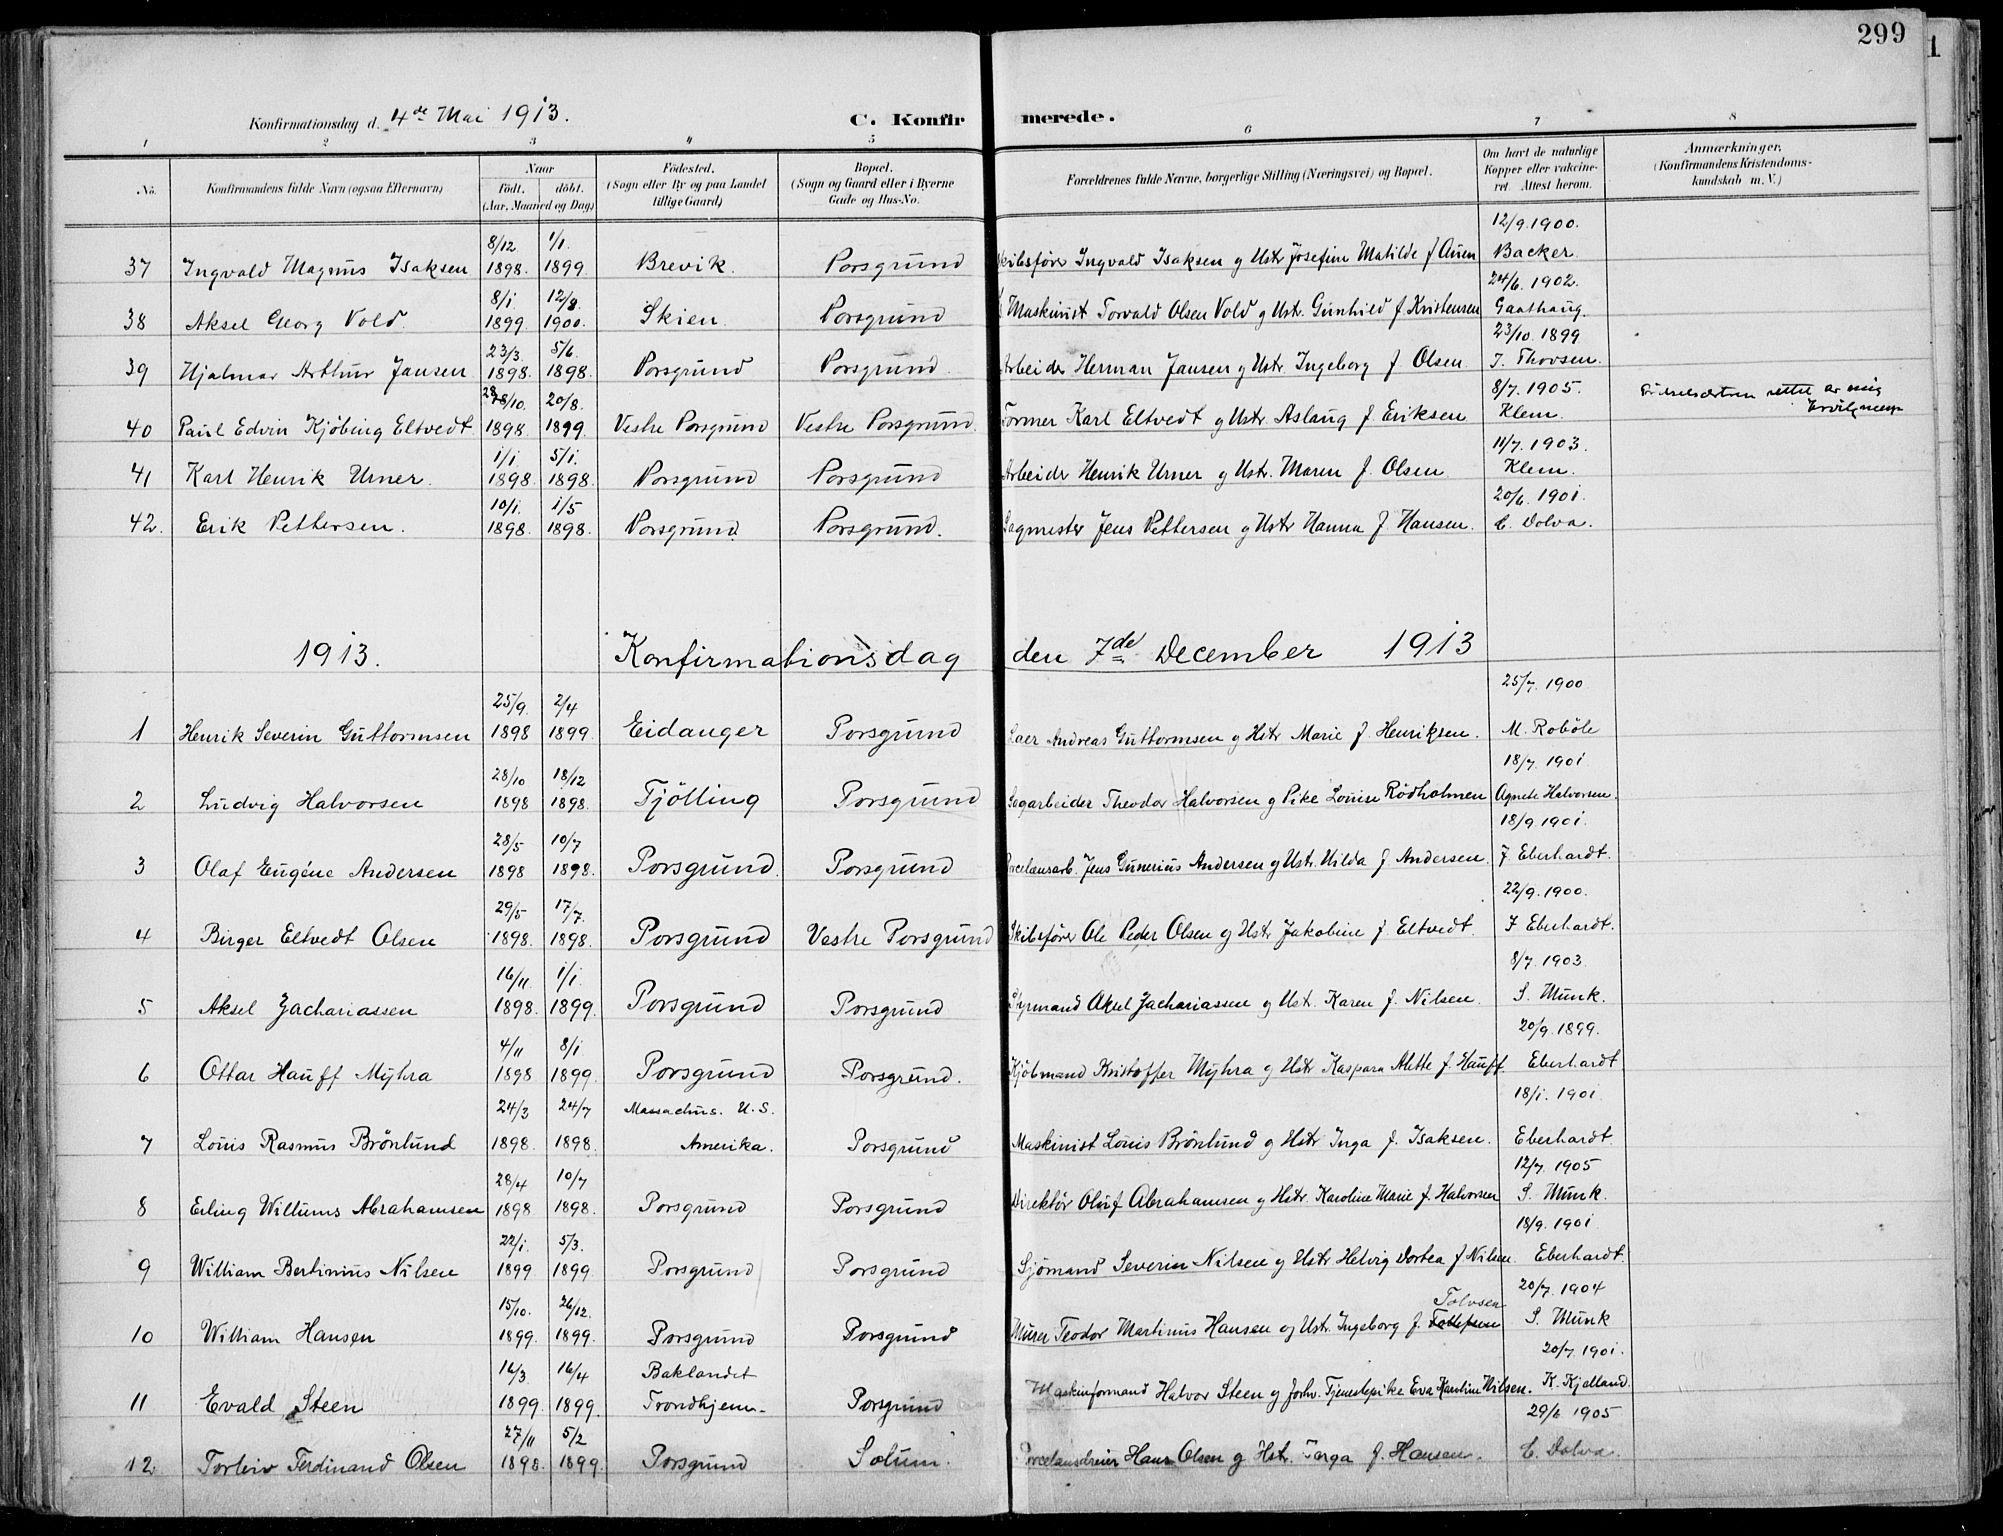 299
Konfirmationsdag d. 4de Mai 1913.
C. Konfirmerede.
1 2 3 4 5 6 7 8
No. Konfirmandens fulde Navn (ogsaa Efternavn) Naar Födt. döbt. (Aar, Maaned og Dag) Födested. (Sogn eller By og paa Landet tillige Gaard) Bopæl. (Sogn og Gaard eller i Byerne Gade og Hus-No. Forældrenes fulde Navne, borgerlige Stilling (Næringsvei) og Bopæl. Om havt de naturlige Kopper eller vakcineret. Attest herom. Anmærkninger, (Konfirmandens Kristendomskundskab m. V.)
8/12 1/1. 12/9.1900.
37 Ingvald Magnus Isaksen 1898. 1899. Brevik. Porsgrund Skibsförer Ingvald Isaksen g Ustr Josefine Matilde f Auen Backer.
8/1 12/8. 24/6. 1902.
38 Aksel Georg Vold. 1899 1900. Skien. Porsgrund Maskinist Torvald Olsen Vold g Ustr. Gunhild f Kristensen Gaathaug.
23/3. 5/6. 23/10. 1899
39 Hjalmar Arthur Jansen 1898. 1898. Porsgrund Porsgrund. Arbeider Herman Jansen g Ustr. Ingeborg f Olsen. I. Thovsen.
28/10. 20/8. 8/7. 1905.
40 Paul Edvin Kjöbing Eltvedt 1898. 1899. Vestre Porsgrund Vestre Porsgrund. Former Karl Eltvedt g Ustr. Aslaug f. Eriksen Klem. rettet av mig
1/1. 5/1. 11/7. 1903.
41 Karl Henrik Urner. 1898. 1898. Porsgrund Porsgrund Arbeider Henrik Urner g Ustr. Maren f. Olsen. Klem.
10/1. 1/5 20/6. 1901.
42. Erik Pettersen. 1898. 1898. Porsgrund. Porsgrund. Sagmester Jens Pettersen g Ustr Hanna f Hansen. C. Dolva.
1913. Konfirmationsdag den 7de December 1913
25/9. 2/4 25/7. 1900
1 Henrik Severin Guttormsen 1898 1899. Eidanger Porsgrund Andreas Guttormsen g Hstr Marie f. Henriksen. M. Roböle
28/10 18/12 18/7. 1901
2 Ludvig Halvorsen 1898 1898. Tjölling Porsgrund Sagarbeider Theodor Halvorsen g Pike Louise Rödholmen Agnete Halvorsen.
28/5 10/7 18/9. 1901.
3 Olaf Eugéne Andersen 1898 1898. Porsgrund. Porsgrund Porcelænsarb. Jens Gunerius Andersen g Ustr. Hilda f Andersen. F. Eberhardt.
29/5 17/7. 22/9. 1900.
4 Birger Eltvedt Olsen 1898. 1898. Porsgrund Vestre Porsgrund Skibsförer Ole Peder Olsen g Ustr Jakobine f. Eltvedt. F Eberhardt.
16/11 1/1. 8/7. 1903.
5 Aksel Zachariassen 1898. 1899. Porsgrund Porsgrund Styrmand Aksel Zachariassen g Ust. Karen f. Nilsen. S. Munk.
4/11 8/1 20/9. 1899.
6 Ottar Hauff Myhra 1898 1899. Porsgrund Porsgrund. Kjöbmand Kristoffer Myhra g Hstr Kaspara Alette f. Hauff. Eberhardt
24/3 24/7 Massachus. U.S. 18/1. 1901.
7 Louis Rasmus Brönlund 1898. 1898. Amerika. Porsgrund Maskinist Louis Brönlund g Hstr Inga f. Isaksen. Eberhardt.
28/4 10/7 12/7. 1905
8 Erling Willums Abrahamsen 1898 1898. Porsgrund Porsgrund Direktör Oluf Abrahamsen g Hstr. Karoline Marie f. Halvorsen S. Munk.
22/1. 5/3. 18/9. 1901.
9 William Bertinius Nilsen 1899 1899. Porsgrund Porsgrund Sjömand Severin Nilsen g Hstr Helvig Dortea f Nilsen. Eberhardt.
15/10. 26/12. Tolvsen 20/7. 1904
10 William Hansen 1899. 1899. Porsgrund Porsgrund Murer Teodor Martinus Hansen og Ustr. Ingeborg f. S. Munk
16/3. 16/4 Baklandet 20/7. 1901.
11 Evald Steen 1899. 1899. Trondhjem. Porsgrund Maskinformand Halvor Steen g forhv. Tjenestepike Eva Karoline Nilsen. K. Kjelland.
27/11 5/2 29/6 1905
12 Torleiv Ferdinand Olsen 1898. 1899. Porsgrund Solum. Porcelænsdreier Hans Olsen g Hstr. Torga f. Hansen. C. Dolva.